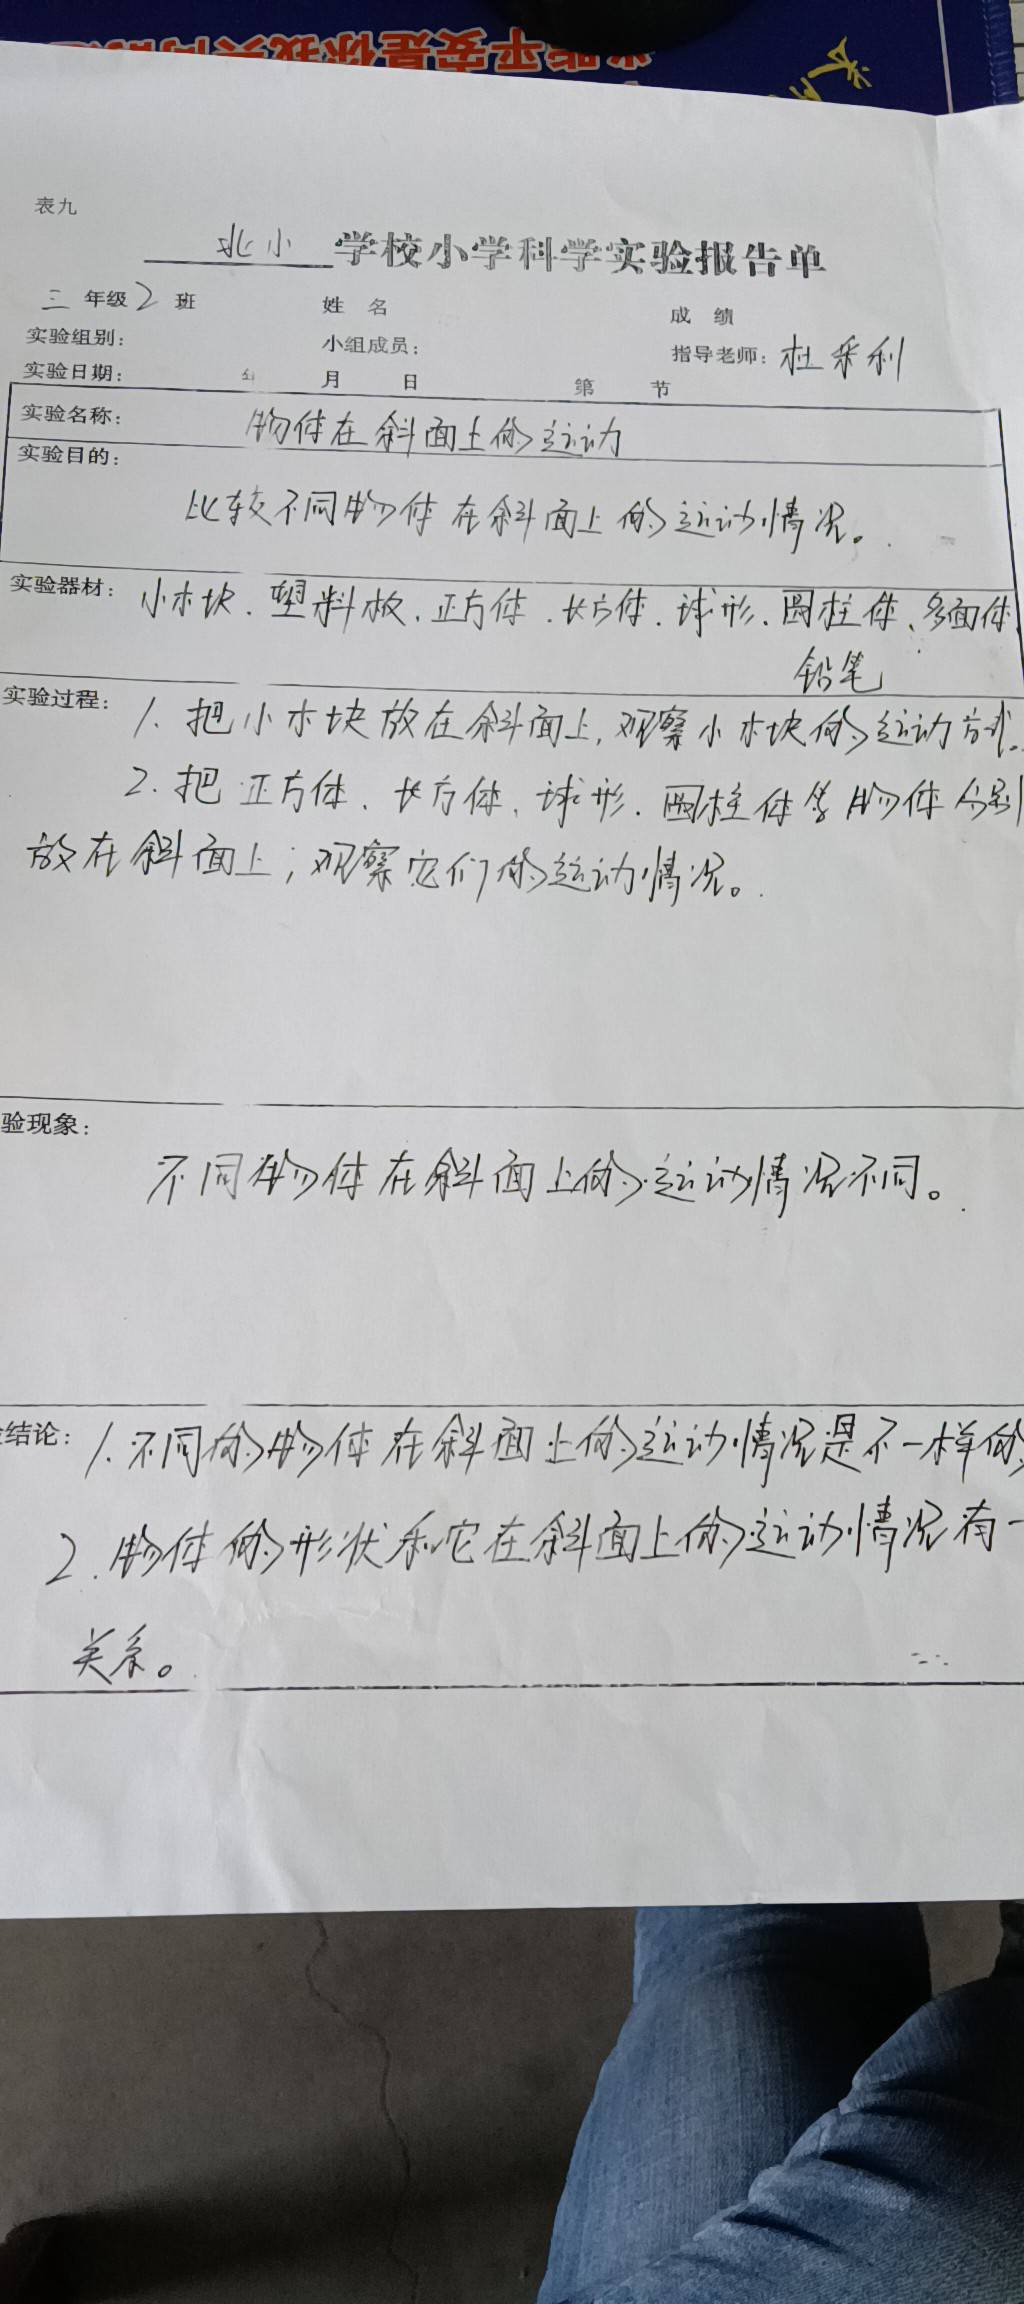 表九
北小 学校小学科学实验报告单
三 年级 2 班 姓 名 成 绩
实验组别： 小组成员： 指导老师：杜采利
实验日期： 年 月 日 第 节
实验名称： 物体在斜面上的运动
实验目的：
比较不同物体在斜面上的运动情况。
实验器材：小木块、塑料板、正方体、长方体、球形、圆柱体、多面体
铅笔
实验过程：1. 把小木块放在斜面上，观察小木块的运动方式。
2. 把正方体、长方体、球形、圆柱体等物体分别
放在斜面上；观察它们的运动情况。
验现象：
不同物体在斜面上的运动情况不同。
结论：1. 不同的物体在斜面上的运动情况是不一样的
2. 物体的形状和它在斜面上的运动情况有一
关系。